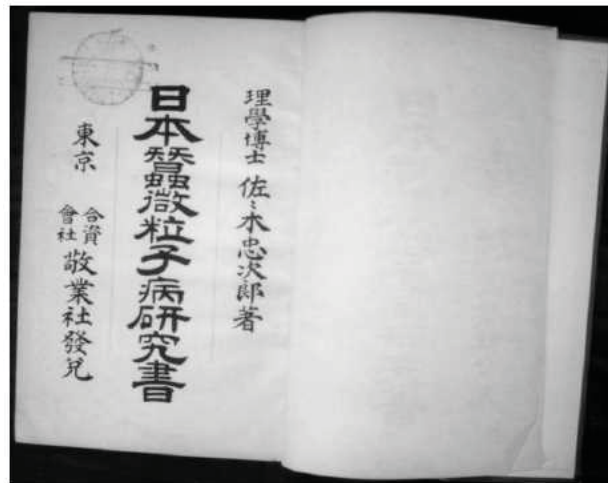 理學博士 佐々木忠次郎著
日本蠶微粒子病研究書
東京 合資會社 敬業社發兌